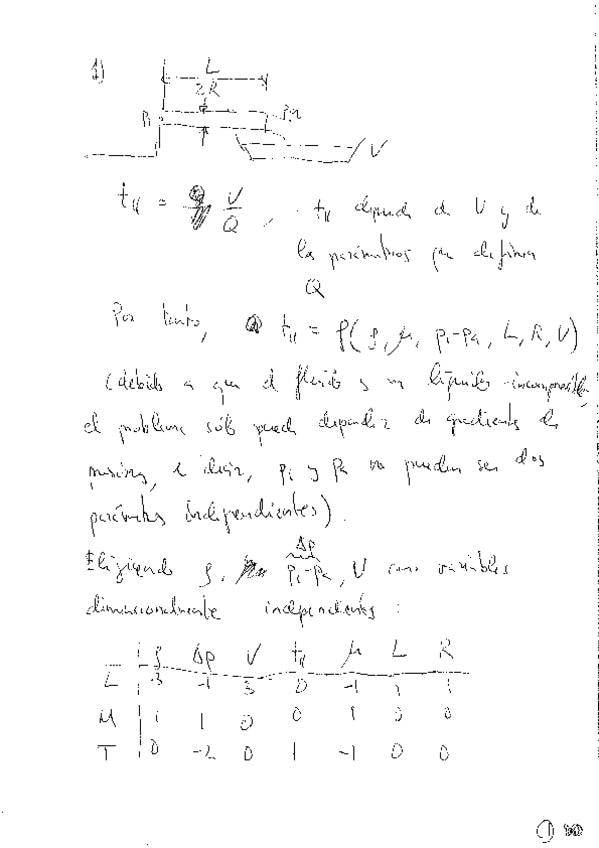 1)
L
2R
Pi
Pa
V
t_ll = V/Q , t_ll depende de V y de
los parámetros que definen
Q
Por tanto, t_ll = f(ρ, μ, pi-pa, L, R, V)
(debido a que el fluido es un líquido incompresible,
el problema sólo puede depender de gradientes de
presión, es decir, pi y pa no pueden ser dos
parámetros independientes).
Δp
Eligiendo ρ, pi-pa, V como variables
dimensionalmente independientes :
ρ Δp V t_ll μ L R
L -3 -1 3 0 -1 1 1
M 1 1 0 0 1 0 0
T 0 -2 0 1 -1 0 0
1